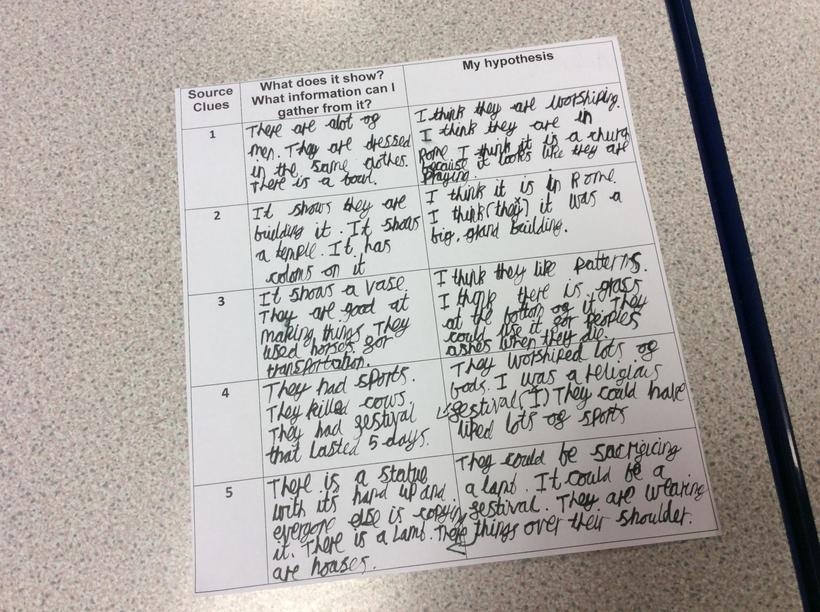 Source
Clues
What does it show?
What information can I
gather from it?
My hypothesis
1
There are alot of
men. They are dressed
in the same clothes.
There is a bowl.
I think they are worshiping.
I think they are in
Rome. I think it is a church
because it looks like they are
Praying.
2
It shows they are
building it. It shows
a temple. It has
colons on it
I think it is in Rome.
I think (they) it was a
big, grand building.
3
It shows a vase
They are good at
making things. They
used horses for
transportation.
I think they like Patterns.
I think there is glass
at the bottom of it. They
could use it for peoples
ashes when they die.
4
They had sports.
They killed cows.
They had festival
that lasted 5 days.
They worshiped lots of
Gods. I was a religious
festival (I) They could have
liked lots of sports
5
There is a statue
with its hand up and
everyone else is copying
it. There is a Lamb. There
are houses.
They could be sacrificing
a lamb. It could be a
festival. They are wearing
things over their shoulder.